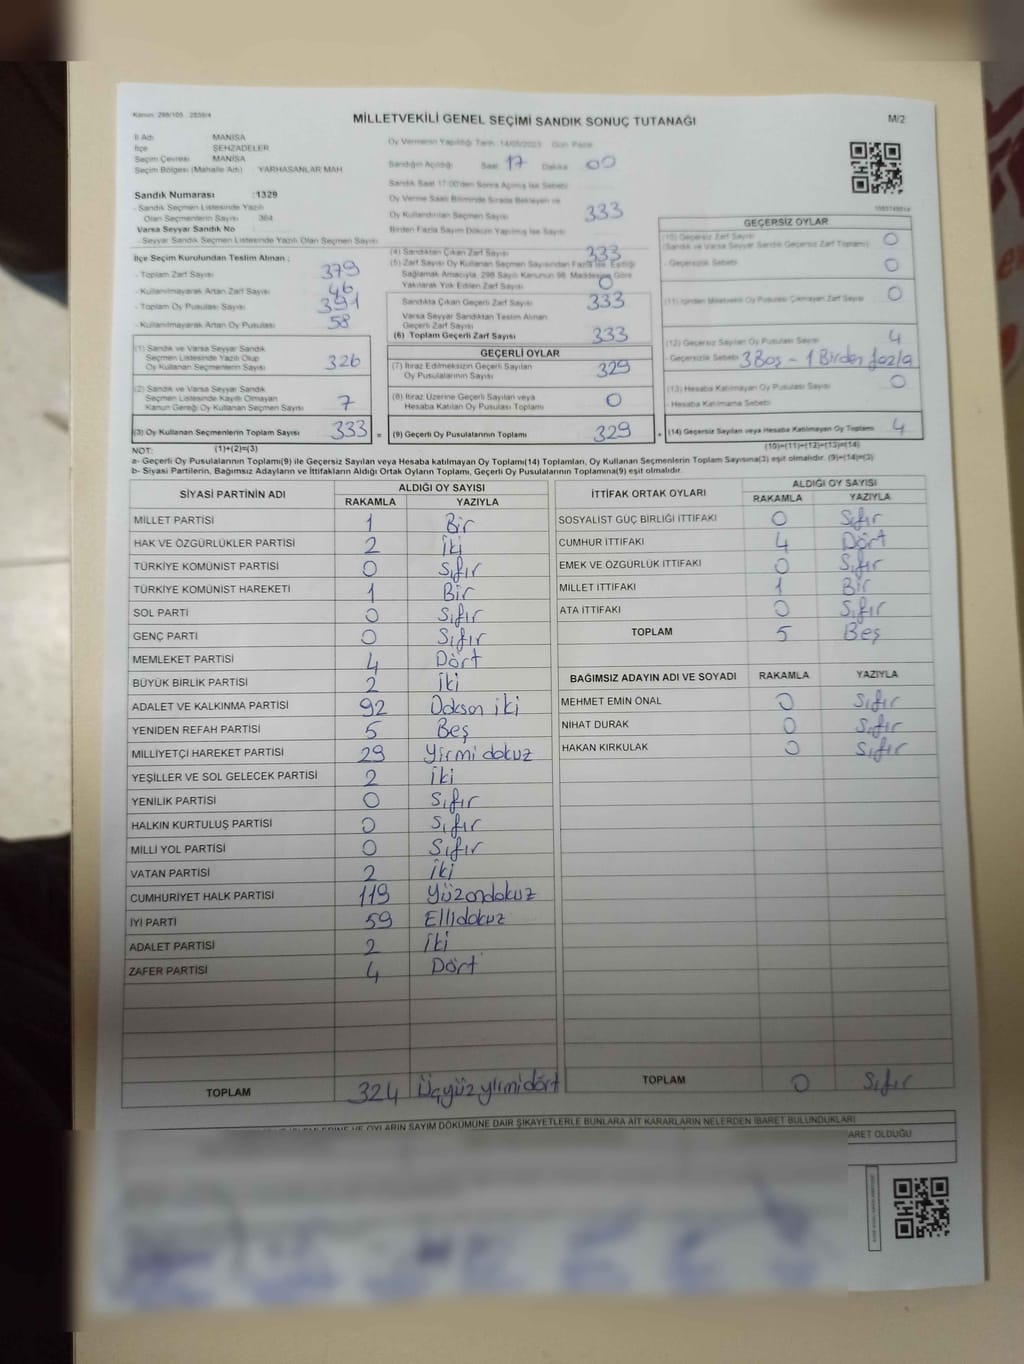 Kanun: 298/105 2839/4
MİLLETVEKİLİ GENEL SEÇİMİ SANDIK SONUÇ TUTANAĞI
M/2
İl Adı MANİSA
İlçe ŞEHZADELER
Seçim Çevresi MANİSA
Seçim Bölgesi (Mahalle Adı) YARHASANLAR MAH
Sandık Numarası :1329
- Sandık Seçmen Listesinde Yazılı
Olan Seçmenlerin Sayısı 364
Varsa Seyyar Sandık No
- Seyyar Sandık Seçmen Listesinde Yazılı Olan Seçmen Sayısı
İlçe Seçim Kurulundan Teslim Alınan ;
- Toplam Zarf Sayısı 379
- Kullanılmayarak Artan Zarf Sayısı 46
- Toplam Oy Pusulası Sayısı 391
- Kullanılmayarak Artan Oy Pusulası 58
(1) Sandık ve Varsa Seyyar Sandık
Seçmen Listesinde Yazılı Olup
Oy Kullanan Seçmenlerin Sayısı 326
(2) Sandık ve Varsa Seyyar Sandık
Seçmen Listesinde Kayıtlı Olmayan
Kanun Gereği Oy Kullanan Seçmen Sayısı 7
(3) Oy Kullanan Seçmenlerin Toplam Sayısı 333 =
Oy Vermenin Yapıldığı Tarih: 14/05/2023 Gün Pazar
Sandığın Açıldığı Saat 17 Dakika 00
Sandık Saat 17:00'den Sonra Açılmış İse Sebebi
Oy Verme Saati Bitiminde Sırada Bekleyen ve
Oy Kullandırılan Seçmen Sayısı 333
Birden Fazla Sayım Döküm Yapılmış İse Sayısı
(4) Sandıktan Çıkan Zarf Sayısı 333
(5) Zarf Sayısı Oy Kullanan Seçmen Sayısından Fazla İse, Eşitliği
Sağlamak Amacıyla, 298 Sayılı Kanunun 98. Maddesine Göre
Yakılarak Yok Edilen Zarf Sayısı 0
Sandıkta Çıkan Geçerli Zarf Sayısı 333
Varsa Seyyar Sandıktan Teslim Alınan
Geçerli Zarf Sayısı
(6) Toplam Geçerli Zarf Sayısı 333
GEÇERLİ OYLAR
(7) İtiraz Edilmeksizin Geçerli Sayılan
Oy Pusulalarının Sayısı 329
(8) İtiraz Üzerine Geçerli Sayılan veya
Hesaba Katılan Oy Pusulası Toplamı 0
(9) Geçerli Oy Pusulalarının Toplamı 329 +
GEÇERSİZ OYLAR
(10) Geçersiz Zarf Sayısı
(Sandık ve Varsa Seyyar Sandık Geçersiz Zarf Toplamı) 0
- Geçersizlik Sebebi 0
(11) İçinden Milletvekili Oy Pusulası Çıkmayan Zarf Sayısı 0
(12) Geçersiz Sayılan Oy Pusulası Sayısı 4
- Geçersizlik Sebebi 3 Boş - 1 Birden fazla
(13) Hesaba Katılmayan Oy Pusulası Sayısı 0
- Hesaba Katılmama Sebebi
(14) Geçersiz Sayılan veya Hesaba Katılmayan Oy Toplamı 4
NOT: (1)+(2)=(3)
(10)+(11)+(12)+(13)=(14)
a- Geçerli Oy Pusulalarının Toplamı(9) ile Geçersiz Sayılan veya Hesaba katılmayan Oy Toplamı(14) Toplamları, Oy Kullanan Seçmenlerin Toplam Sayısına(3) eşit olmalıdır. (9)+(14)=(3)
b- Siyasi Partilerin, Bağımsız Adayların ve İttifakların Aldığı Ortak Oyların Toplamı, Geçerli Oy Pusulalarının Toplamına(9) eşit olmalıdır.
SİYASİ PARTİNİN ADI ALDIĞI OY SAYISI
RAKAMLA YAZIYLA
MİLLET PARTİSİ 1 Bir
HAK VE ÖZGÜRLÜKLER PARTİSİ 2 İki
TÜRKİYE KOMÜNİST PARTİSİ 0 Sıfır
TÜRKİYE KOMÜNİST HAREKETİ 1 Bir
SOL PARTİ 0 Sıfır
GENÇ PARTİ 0 Sıfır
MEMLEKET PARTİSİ 4 Dört
BÜYÜK BİRLİK PARTİSİ 2 İki
ADALET VE KALKINMA PARTİSİ 92 Doksan iki
YENİDEN REFAH PARTİSİ 5 Beş
MİLLİYETÇİ HAREKET PARTİSİ 29 Yirmi dokuz
YEŞİLLER VE SOL GELECEK PARTİSİ 2 İki
YENİLİK PARTİSİ 0 Sıfır
HALKIN KURTULUŞ PARTİSİ 0 Sıfır
MİLLİ YOL PARTİSİ 0 Sıfır
VATAN PARTİSİ 2 İki
CUMHURİYET HALK PARTİSİ 119 Yüzondokuz
İYİ PARTİ 59 Ellidokuz
ADALET PARTİSİ 2 İki
ZAFER PARTİSİ 4 Dört
TOPLAM 324 Üçyüzyirmidört
İTTİFAK ORTAK OYLARI ALDIĞI OY SAYISI
RAKAMLA YAZIYLA
SOSYALİST GÜÇ BİRLİĞİ İTTİFAKI 0 Sıfır
CUMHUR İTTİFAKI 4 Dört
EMEK VE ÖZGÜRLÜK İTTİFAKI 0 Sıfır
MİLLET İTTİFAKI 1 Bir
ATA İTTİFAKI 0 Sıfır
TOPLAM 5 Beş
BAĞIMSIZ ADAYIN ADI VE SOYADI RAKAMLA YAZIYLA
MEHMET EMİN ÖNAL 0 Sıfır
NİHAT DURAK 0 Sıfır
HAKAN KIRKULAK 0 Sıfır
TOPLAM 0 Sıfır
VE OYLARIN SAYIM DÖKÜMÜNE DAİR ŞİKAYETLERLE BUNLARA AİT KARARLARIN NELERDEN İBARET BULUNDUKLARI
OLDUĞU